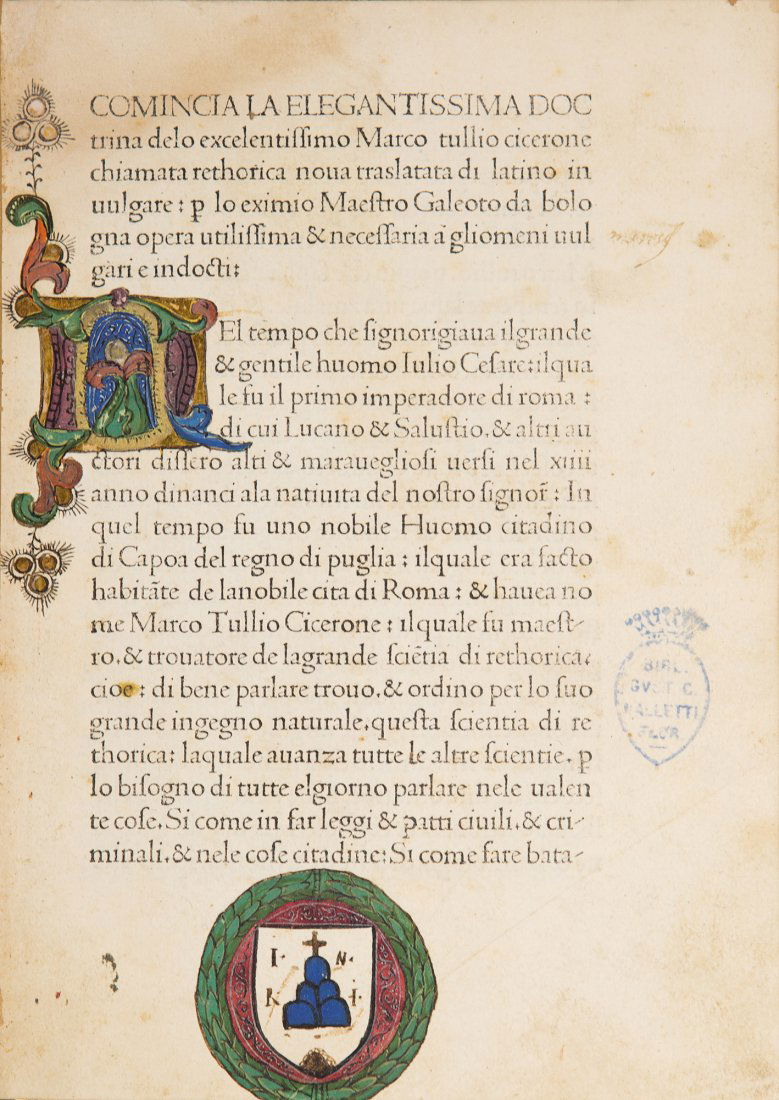 COMINCIA LA ELEGANTISSIMA DOC
trina delo excelentissimo Marco tullio cicerone
chiamata rethorica noua traslatata di latino in
uulgare : ꝑ lo eximio Maestro Galeoto da bolo
gna opera utilissima & necessaria a gliomeni uul
gari e indocti:
N El tempo che signorigiaua ilgrande
& gentile huomo Iulio Cesare:ilqua
le fu il primo imperadore di roma :
di cui Lucano & Salustio.& altri au
ctori dissero alti & marauegliosi uersi nel xiiii
anno dinanci ala natiuita del nostro signor̄ : In
quel tempo fu uno nobile Huomo citadino
di Capoa del regno di puglia : ilquale era facto
habitāte de lanobile cita di Roma : & hauea no
me Marco Tullio Cicerone : ilquale fu maest-
ro.& trouatore de lagrande sciētia di rethorica:
cioe : di bene parlare trouo.& ordino per lo suo
grande ingegno naturale.questa scientia di re
thorica: laquale auanza tutte le altre scientie. ꝑ
lo bisogno di tutte elgiorno parlare nele ualen
te cose. Si come in far leggi & patti ciuili.& cri-
minali.& nele cose citadine: Si come fare bata-
BIBL.
GVST. C.
GALLETTI
FLOR.
I· N·
R· I·